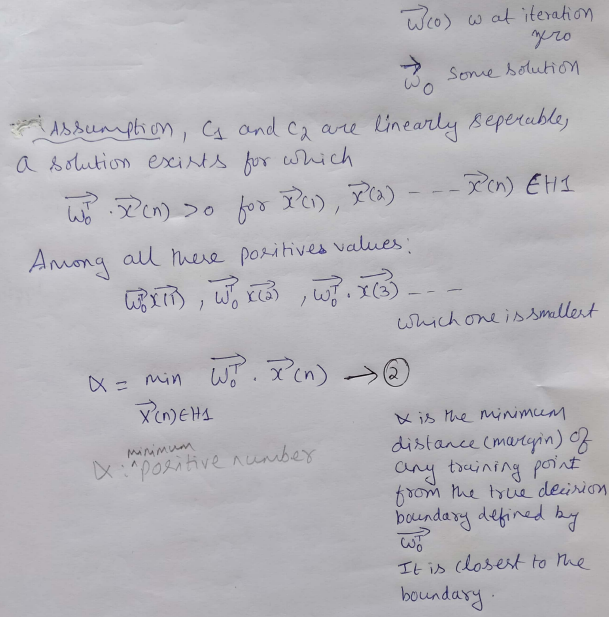 w⃗(0) w at iteration
zero
w⃗₀ some solution
Assumption, C1 and C2 are linearly seperable,
a solution exists for which
w⃗₀ᵀ . x⃗(n) > 0 for x⃗(1), x⃗(2) ---- x⃗(n) ∈ H1
Among all these positives values:
w⃗₀ᵀ x⃗(1), w⃗₀ᵀ x⃗(2), w⃗₀ᵀ . x⃗(3) ----
which one is smallest
α = min w⃗₀ᵀ . x⃗(n) → ②
x⃗(n) ∈ H1
minimum
α : ^positive number
α is the minimum
distance (margin) of
any training point
from the true decision
boundary defined by
w⃗₀ᵀ
It is closest to the
boundary.